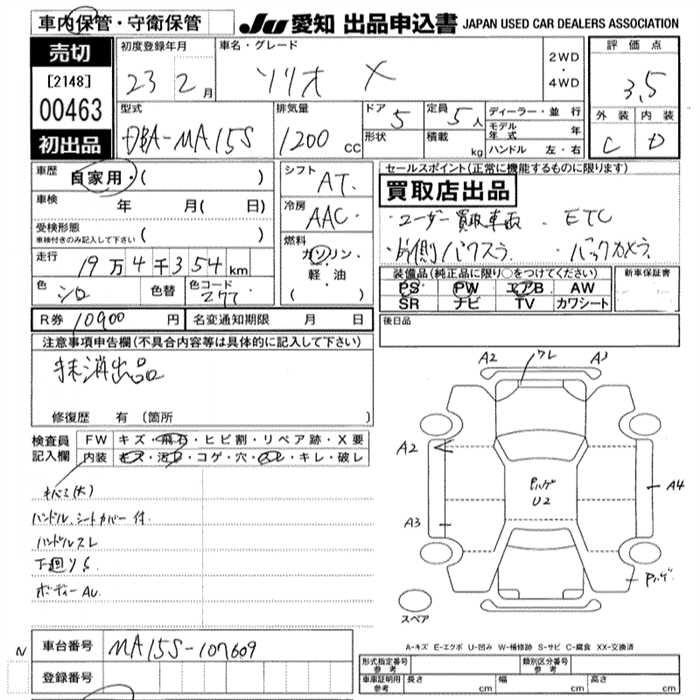 車内保管・守衛保管
JU 愛知 出品申込書 JAPAN USED CAR DEALERS ASSOCIATION
売切
[2148]
00463
初出品
初度登録年月
23 2月
車名・グレード
ソリオ X
2WD
・
4WD
評価点
3.5
外装 内装
C D
型式
DBA-MA15S
排気量
1200 cc
ドア 5
形状
定員 5人
積載 kg
ディーラー・並行
モデル年式 年
ハンドル 左・右
車歴 自家用・( )
車検 年 月( 日)
受検形態
車検付きのみ記入して下さい ( )
走行 19万4千354km
色 シロ 色替 色コード Z77
シフト AT
冷房 AAC
燃料
ガソリン・
軽油
( )
セールスポイント(正常に機能するものに限ります)
買取店出品
・ユーザー買取車両 ・ETC
・片側パワスラ ・バックカメラ
装備品(純正品に限り○をつけてください)
PS PW エアB AW
SR ナビ TV カワシート
新車保証書
R券 10900円 名変通知期限 月 日
後日品
注意事項申告欄(不具合内容等は具体的に記入して下さい)
抹消出品
修復歴 有 (箇所
検査員
記入欄
FW キズ・飛石・ヒビ割・リペア跡・X要
内装 キズ・汚れ・コゲ・穴・スレ・キレ・破レ
ハンドル、シートカバー付
ハンドルスレ
下廻りS
ボディーAU
A2 ワレ A3
A2
A3
Pハゲ
U2
A4
Pハゲ
スペア
A-キズ E-エクボ U-凹み W-補修跡 S-サビ C-腐食 XX-交換済
N
車台番号 MA15S-107609
登録番号
形式指定番号
参考
類別区分番号
参考
車庫証明用
参考
長さ cm 幅 cm 高さ cm